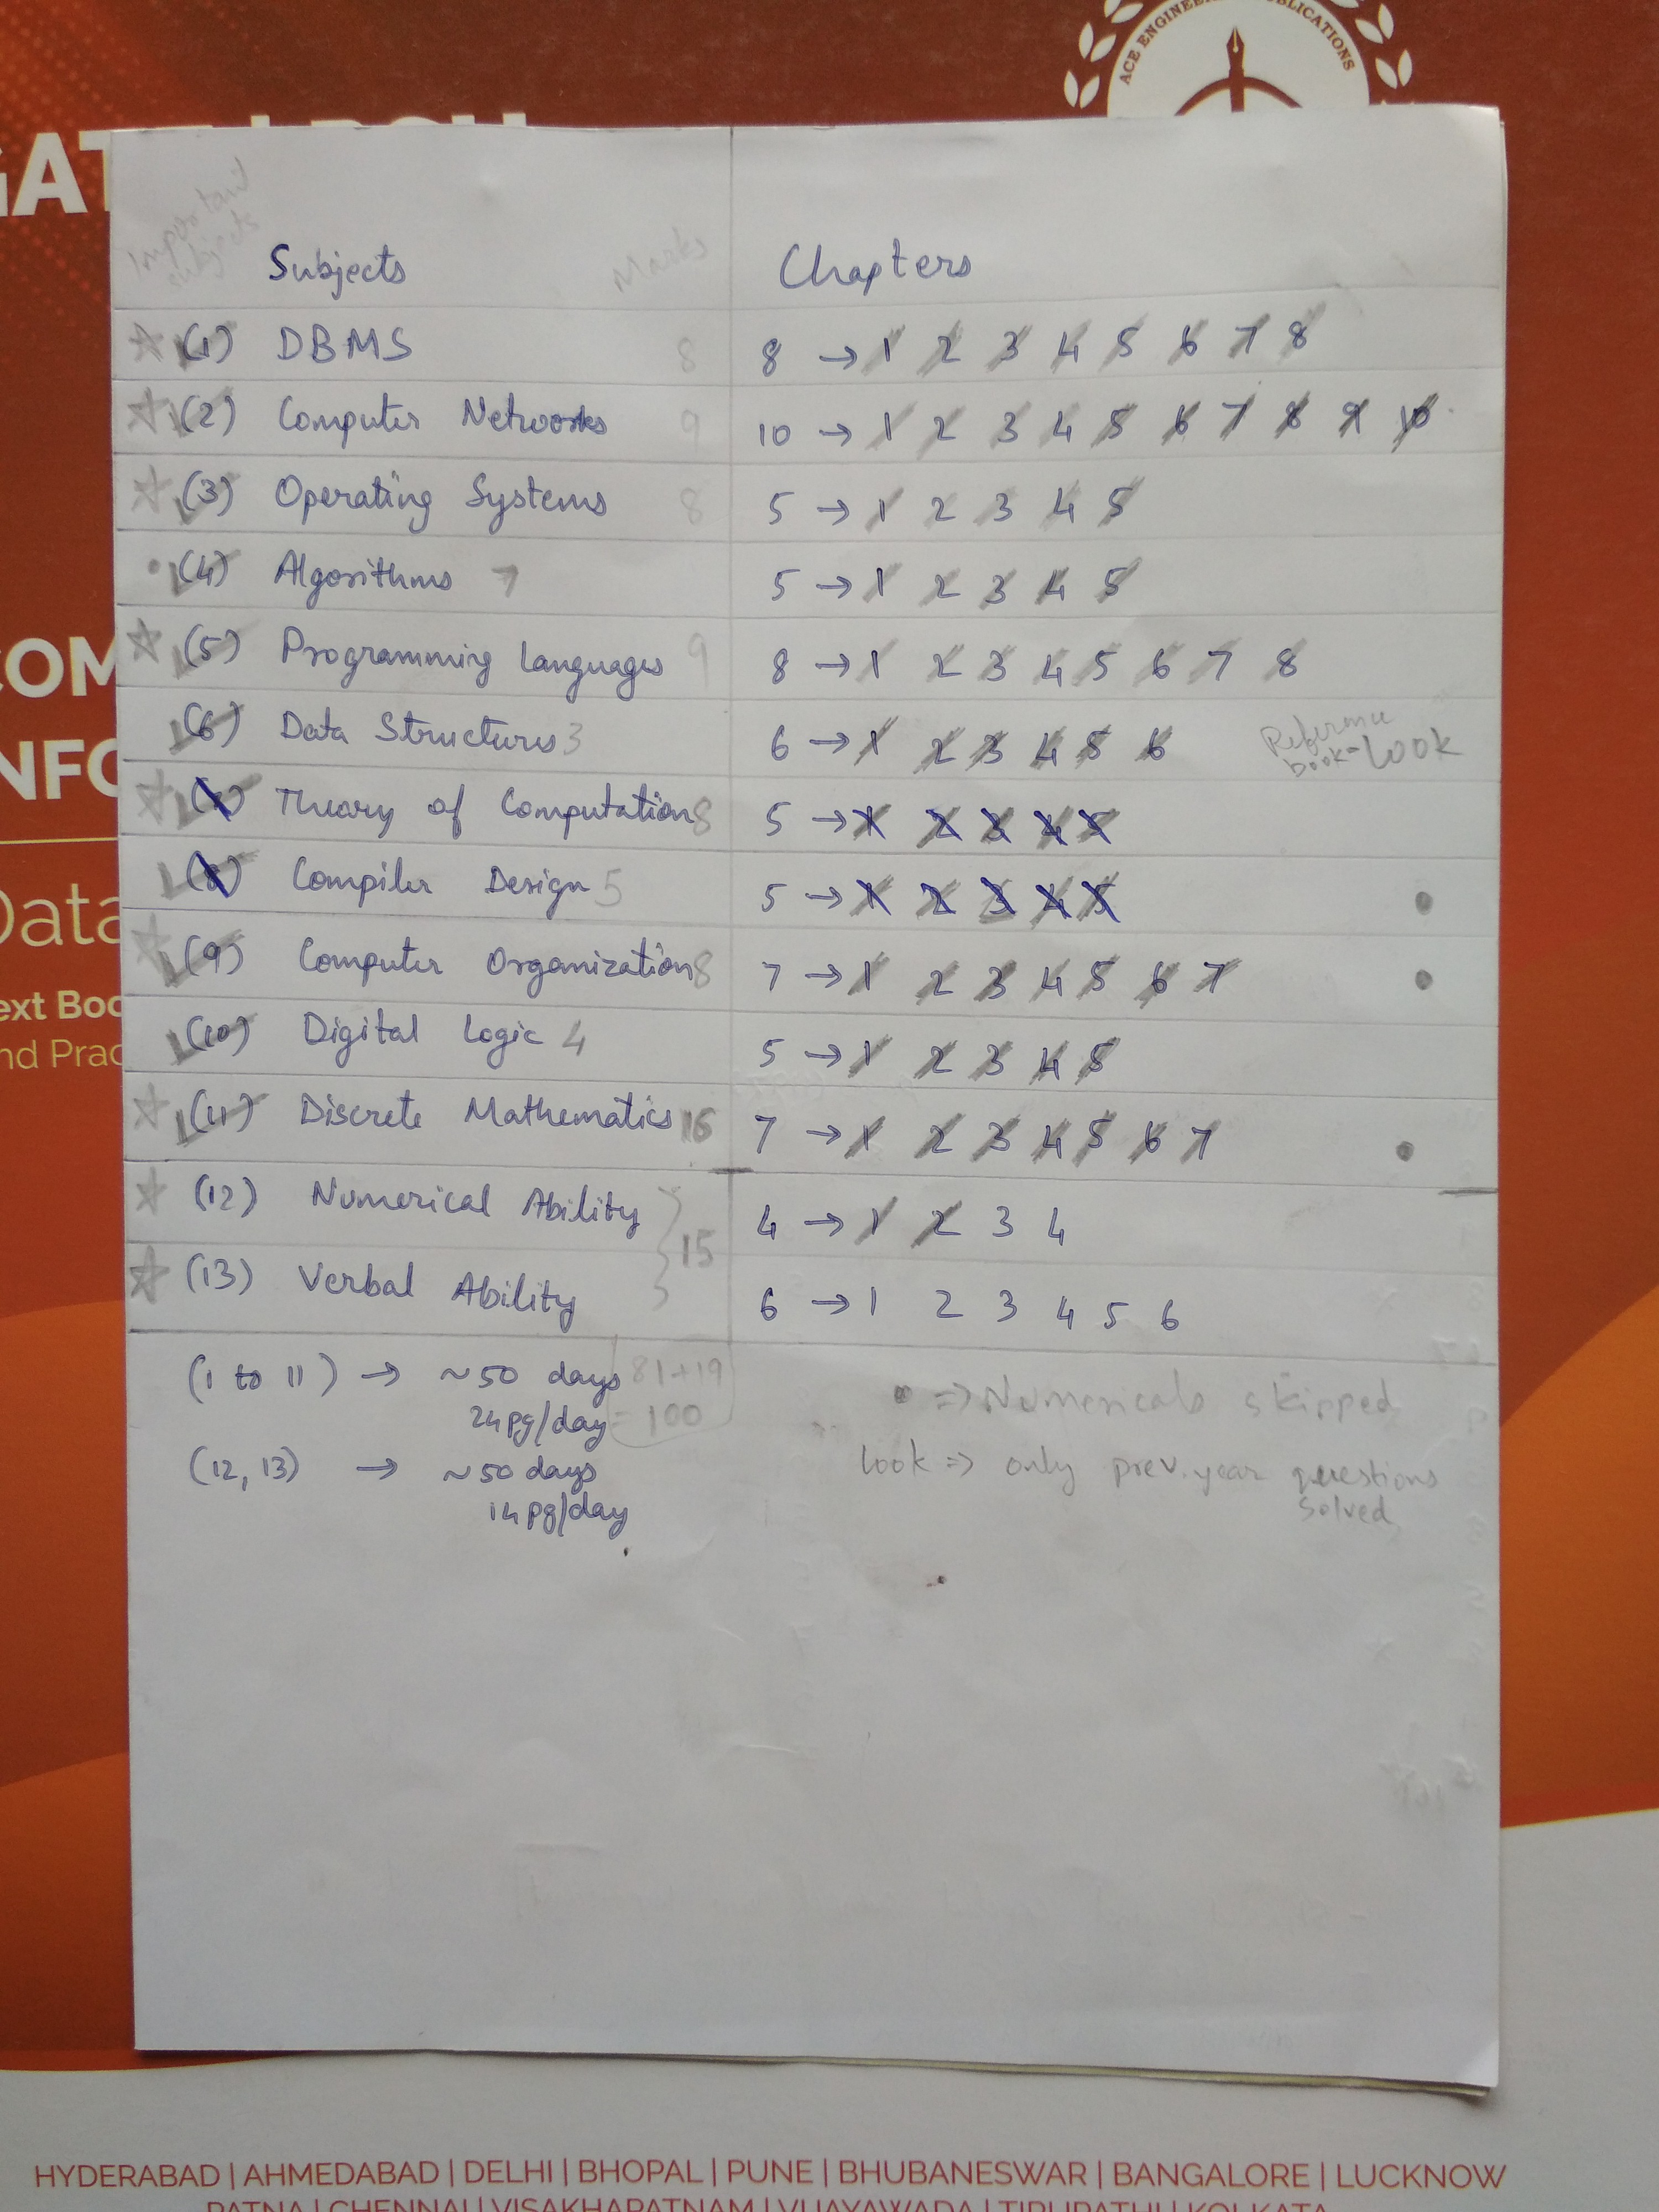 ACE ENGINEERI
BLICATIONS
Important
subjects
Subjects Marks Chapters
(1) DBMS 8 8 → 1 2 3 4 5 6 7 8
(2) Computer Networks 9 10 → 1 2 3 4 5 6 7 8 9 10
(3) Operating Systems 8 5 → 1 2 3 4 5
(4) Algorithms 7 5 → 1 2 3 4 5
(5) Programming Languages 9 8 → 1 2 3 4 5 6 7 8
(6) Data Structures 3 6 → 1 2 3 4 5 6 Reference book - Look
(7) Theory of Computation 8 5 → 1 2 3 4 5
(8) Compiler Design 5 5 → 1 2 3 4 5 •
(9) Computer Organization 8 7 → 1 2 3 4 5 6 7 •
(10) Digital Logic 4 5 → 1 2 3 4 5
(11) Discrete Mathematics 16 7 → 1 2 3 4 5 6 7 •
(12) Numerical Ability 4 → 1 2 3 4
15
(13) Verbal Ability 6 → 1 2 3 4 5 6
(1 to 11) → ~50 days 81+19
24pg/day = 100
• => Numericals skipped
(12, 13) → ~50 days
14pg/day
look => only prev. year questions
solved
GAT
COM
INFO
Data
ext Boo
nd Prac
HYDERABAD | AHMEDABAD | DELHI | BHOPAL | PUNE | BHUBANESWAR | BANGALORE | LUCKNOW
PATNA | CHENNAI | VISAKHAPATNAM | VIJAYAWADA | TIRUPATHI | KOLKATA